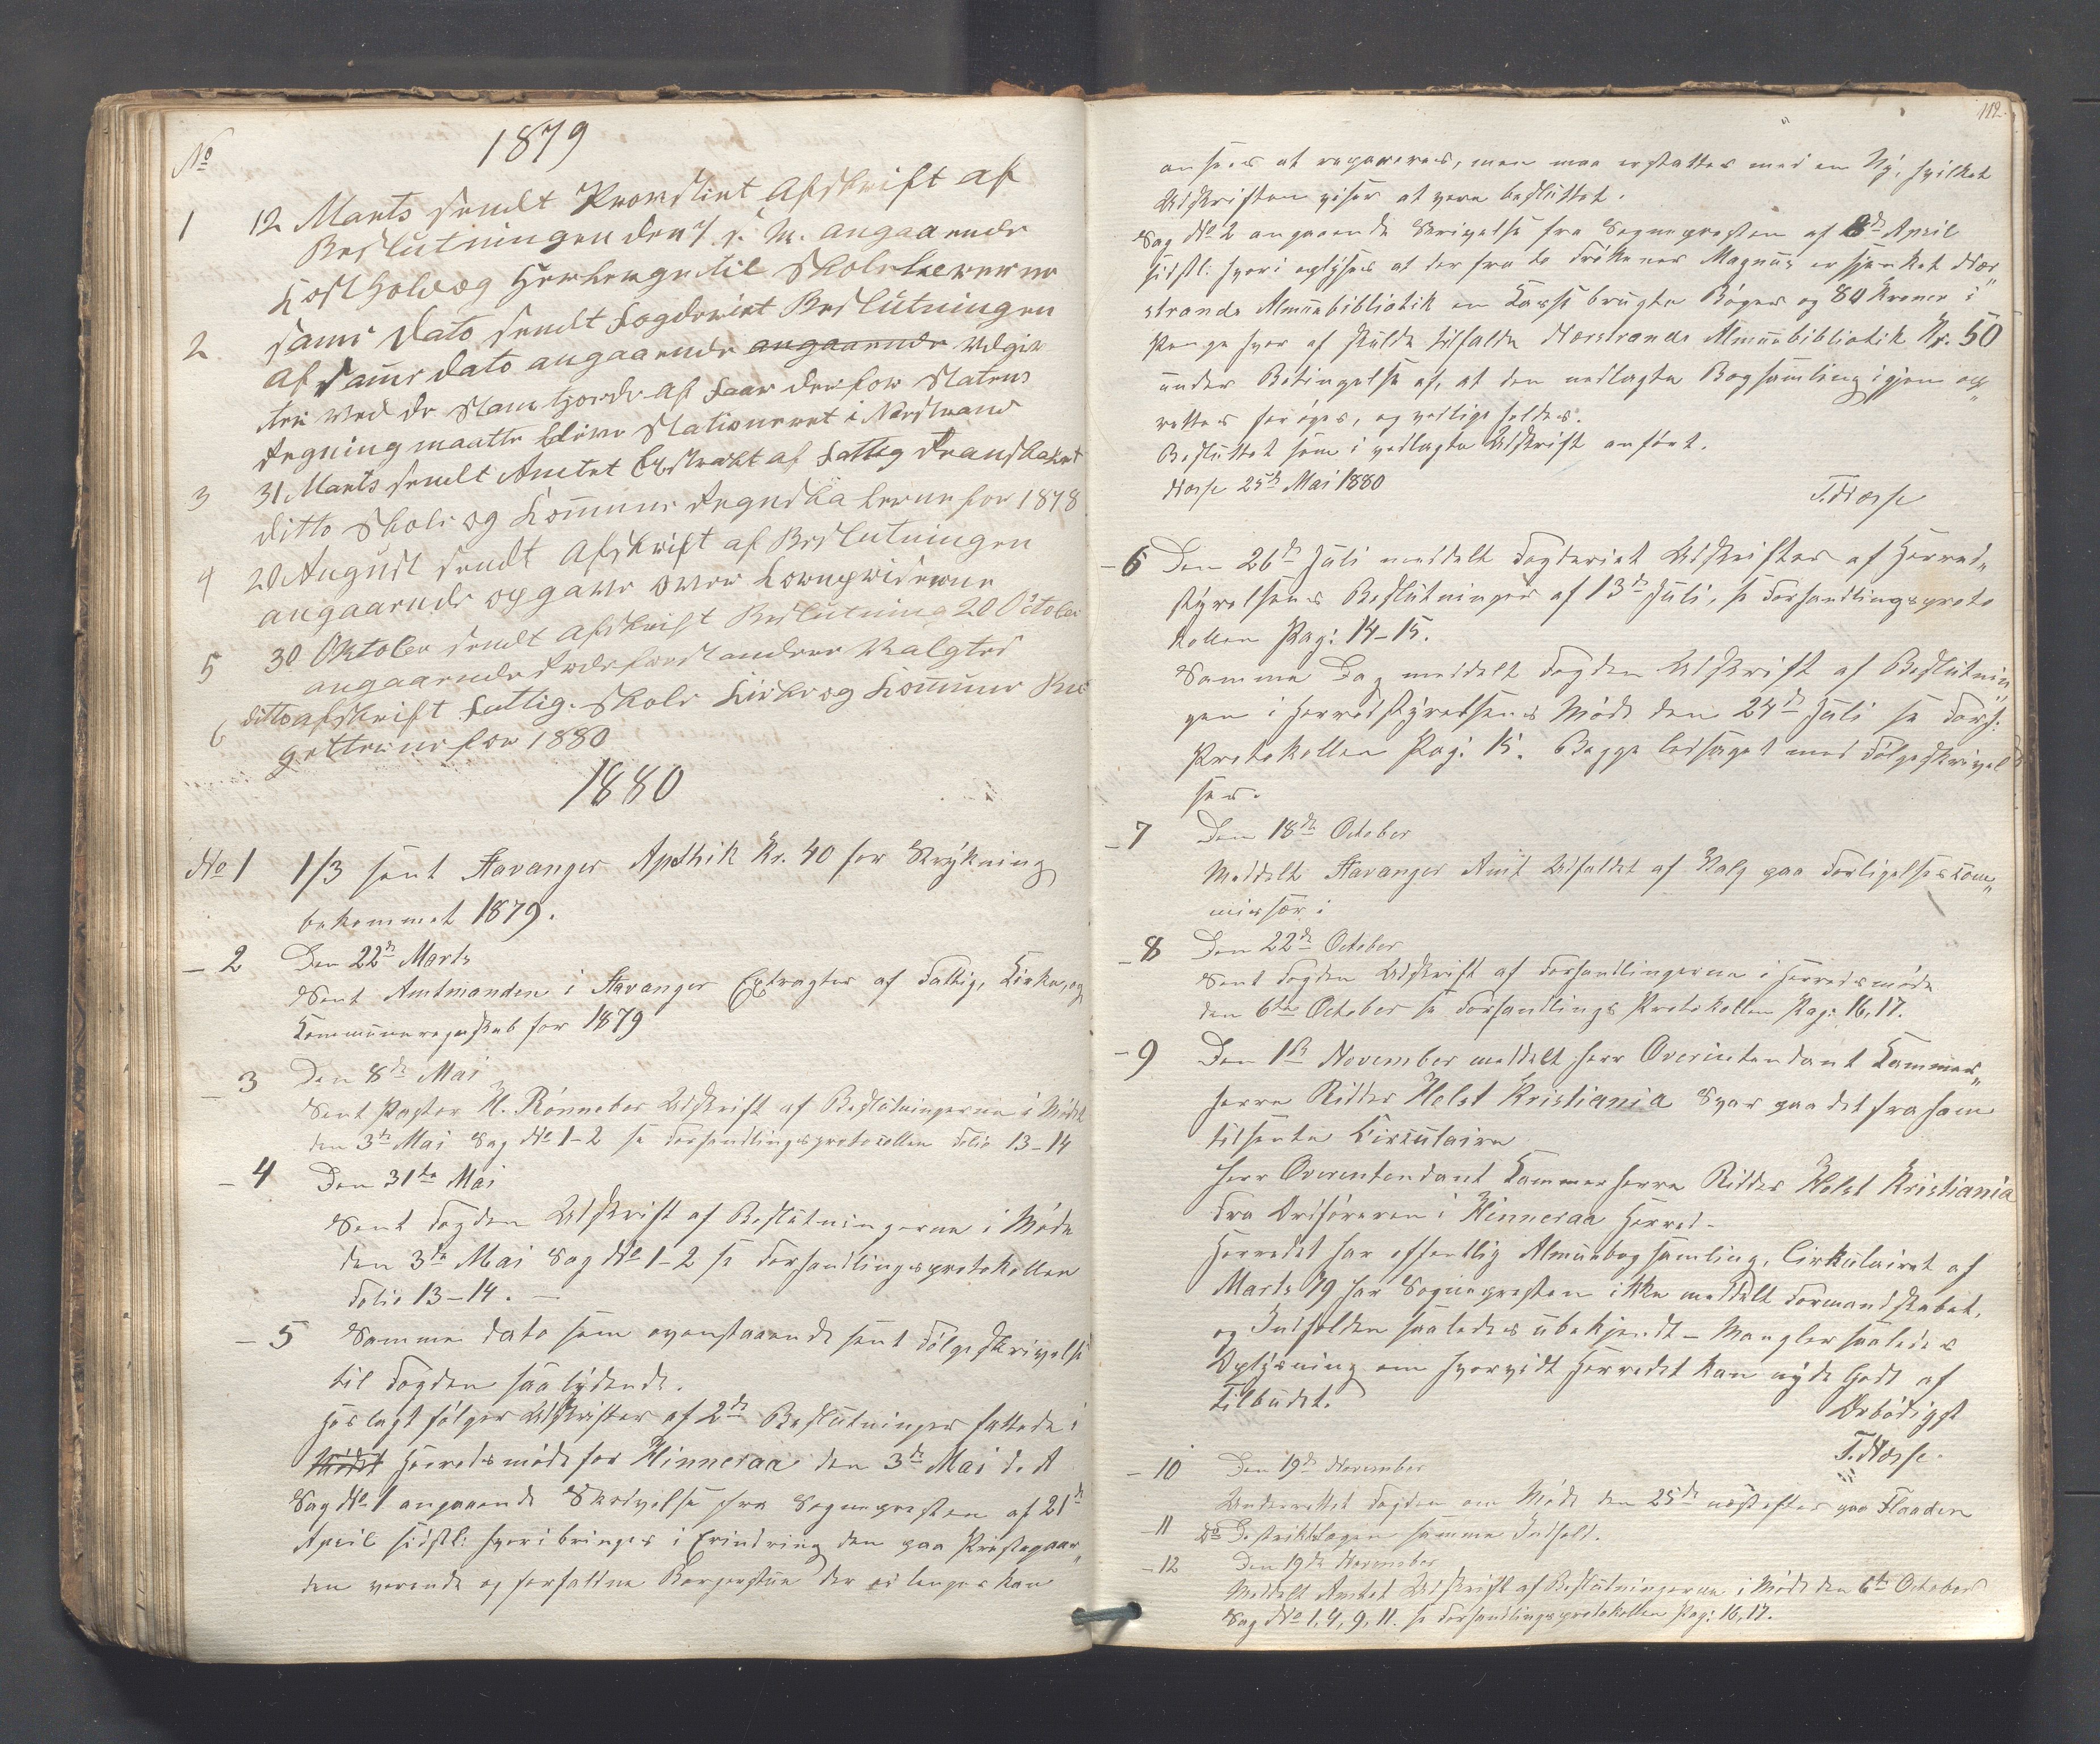 No 1879
1 12 Marts sendt Provstiet Afskrift af
Beslutningen den 7 d. M. angaaende
Kosthold og Herberge til Skolelererne
2 Samme Dato sendt Fogderiet Beslutningen
af samme Dato angaaende angaaende Udgif
ten ved de Stamhjorde af Faar der for Statens
Regning maatte blive Stationeret i Nerstrand
3 31 Marts sendt Amtet Extrakt af Fattig Regnskabet
ditto Skole og Kommune Regnskaberne for 1878
4 20 August sendt Afskrift af Beslutningen
angaaende opgave over Kornpriserne
5 30 Oktober sendt Afskrift Beslutning 20 October
angaaende Valgtes
6 ditto Afskrift Fattig. Skole Kirke og Kommune Bud
getterne for 1880
1880
No 1 1/3 sent Stavanger Apothik Kr. 40 for
bekommet 1879.
– 2 Den 22de Marts
Sent Amtmanden i Stavanger Extragter af Fattig, Kirke, og
Kommuneregnskab for 1879
– 3 Den 8de Mai
Sent Pastor H. Rønneber Udskrift af Beslutningerne i Mødet
den 3de Mai Sag No 1–2 se Forhandlingsprotocollen Folio 13–14
– 4 Den 31te Mai
Sent Fogden Udskrift af Beslutningerne i Møde
den 3de Mai Sag No 1–2 se Forhandlingsprotokollen
Folio 13–14. –
– 5 Samme Dato som ovenstaaende sent Følgeskrivelse
til Fogden saalydende.
Hoslagt følger Udskrifter af 2de Beslutninger fattede i
Mødet Herredsmøde for Hinneraa den 3de Mai d. A
Sag No 1 angaaende Skrivelse fra Sognepresten af 21de
April sidstl: hvori bringes i Erindring den paa Prestegaar„
den verende og forfaldne Borgerstue der ei lenger kan
112.
ansees at repareres, men maa erstattes med en Ny, hvilket
Udskriften viser at vere besluttet.
Sag No 2 angaaende Skrivelse fra Sognepresten af 8de April
sidstl: hvori oplyses at der fra to Frökener Magnus er skjenket Ner„
strands Almuebibliotik en Kasse brugte Bøger og 80 Kroner i
Penge hver af skulde tilfalde Nerstrands Almuebibliotik Kr. 50
under Betingelse af, at den nedlagte Bogsamling igjen op„
rettes forøges, og vedligeholdes.
Besluttet som i vedlagte Udskrift anført.
Nesse 25de Mai 1880
T. Nesse
– 6 Den 26de Juli meddelt Fogderiet Udskrifter af Herred„
styrelsens Beslutninger af 13de Juli, se Forhandlingsproto
kollen Pag: 14–15.
Samme Dag meddelt Fogden Udskrift af Beslutnin
gen i Herredstyrelsens Møde den 24de Juli se Forh:
Protokollen Pag: 15. Begge ledsaget med Følgeskrivel
ser.
– 7 Den 18de October
Meddelt Stavanger Amt Udfaldet af Valg paa Forligelseskom„
missær:
– 8 Den 22de October
Sent Fogden Udskrift af Forhandlingerne i Herredsmøde
den 6te October se Forhandlings Protokollen Pag: 16, 17.
– 9 Den 1ste November meddelt Herr Overintendant Kammer„
herre Ridder Holst Kristiania Svar paa det fra ham
tilsente Cirkulaire
Herr Overintendant Kammerherre Ridder Holst Kristiania
Fra Ordføreren i Hinneraa Herred –
Herredet har offentlig Almuebogsamling. Cirkulairet af
Marts 79 har Sognepresten ikke meddelt Formandskabet,
og Indholden saaledes ubekjendt – Mangler saaledes
Oplysning om hvorvidt Herredet kan nyde Godt af
Tilbudet.
Ærbødigst
T. Nesse.
– 10 Den 19de November
Underrettet Fogden om Møde den 25de næstefter paa Flaaden
– 11 do Distriktslægen samme Indhold.
– 12 Den 19de November
Meddelt Amtet Udskrift af Beslutningerne i Møde den 6te October
Sag No 1, 4, 9, 11. se Forhandlingsprotokollen Pag: 16, 17.